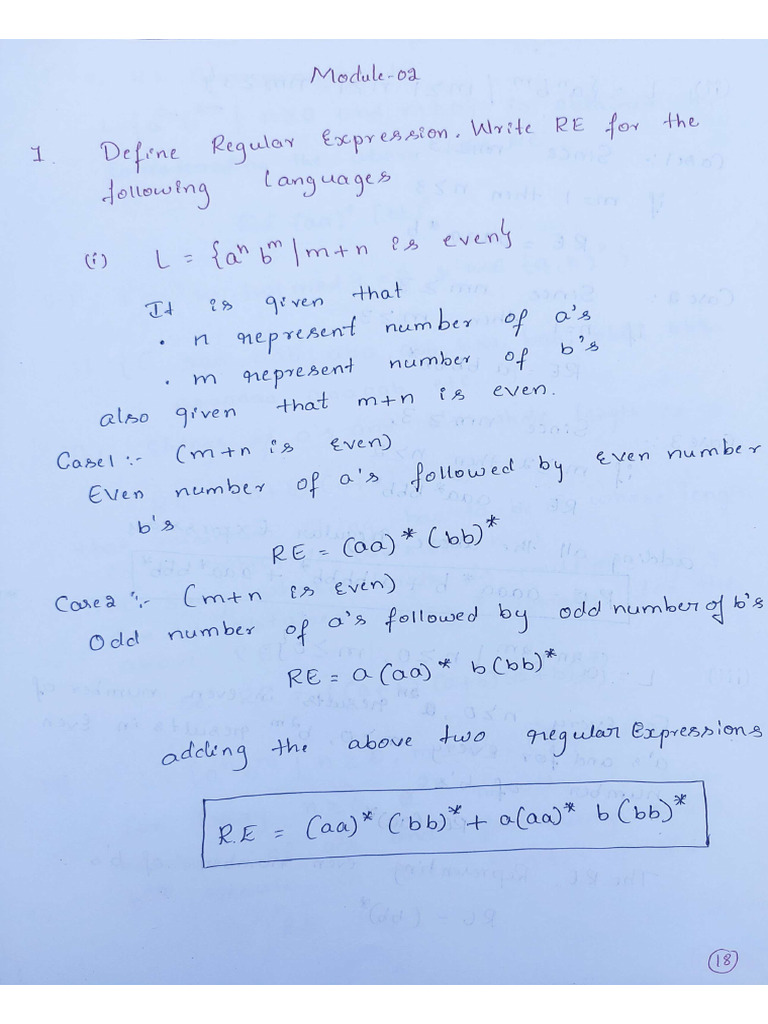 Module-02
1. Define Regular Expression. Write RE for the
following languages
(i) L = {aⁿ bᵐ / m+n is even}
It is given that
• n represent number of a's
• m represent number of b's
also given that m+n is even.
Case1 :- (m+n is even)
Even number of a's followed by even number
b's
RE = (aa)* (bb)*
Case2 :- (m+n is even)
Odd number of a's followed by odd number of b's
RE = a(aa)* b(bb)*
adding the above two regular Expressions
R.E = (aa)* (bb)* + a(aa)* b(bb)*
18